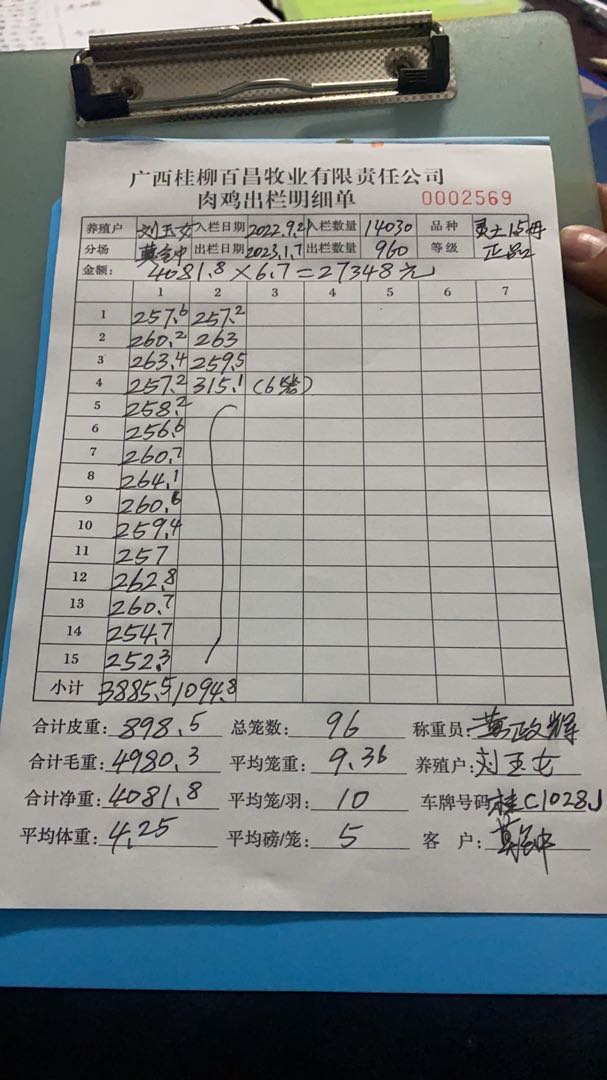 广西桂柳百昌牧业有限责任公司
肉鸡出栏明细单 0002569
养殖户 刘玉女 入栏日期 2022.9.21 入栏数量 14030 品种
分场 出栏日期 2023.1.7 出栏数量 960 等级 正品
金额: 4081.8×6.7=27348元
1 2 3 4 5 6 7
1 257.6 257.2
2 260.2 263
3 263.4 259.5
4 257.2 315.1 (6笼)
5 258.2
6 256.6
7 260.7
8 264.1
9 260.6
10 259.4
11 257
12 262.8
13 260.7
14 254.7
15 252.3
小计 3885.5 1094.8
合计皮重: 898.5 总笼数: 96 称重员: 黄政辉
合计毛重: 4980.3 平均笼重: 9.36 养殖户: 刘玉女
合计净重: 4081.8 平均笼/羽: 10 车牌号码: 桂C1028J
平均体重: 4.25 平均磅/笼: 5 客 户: